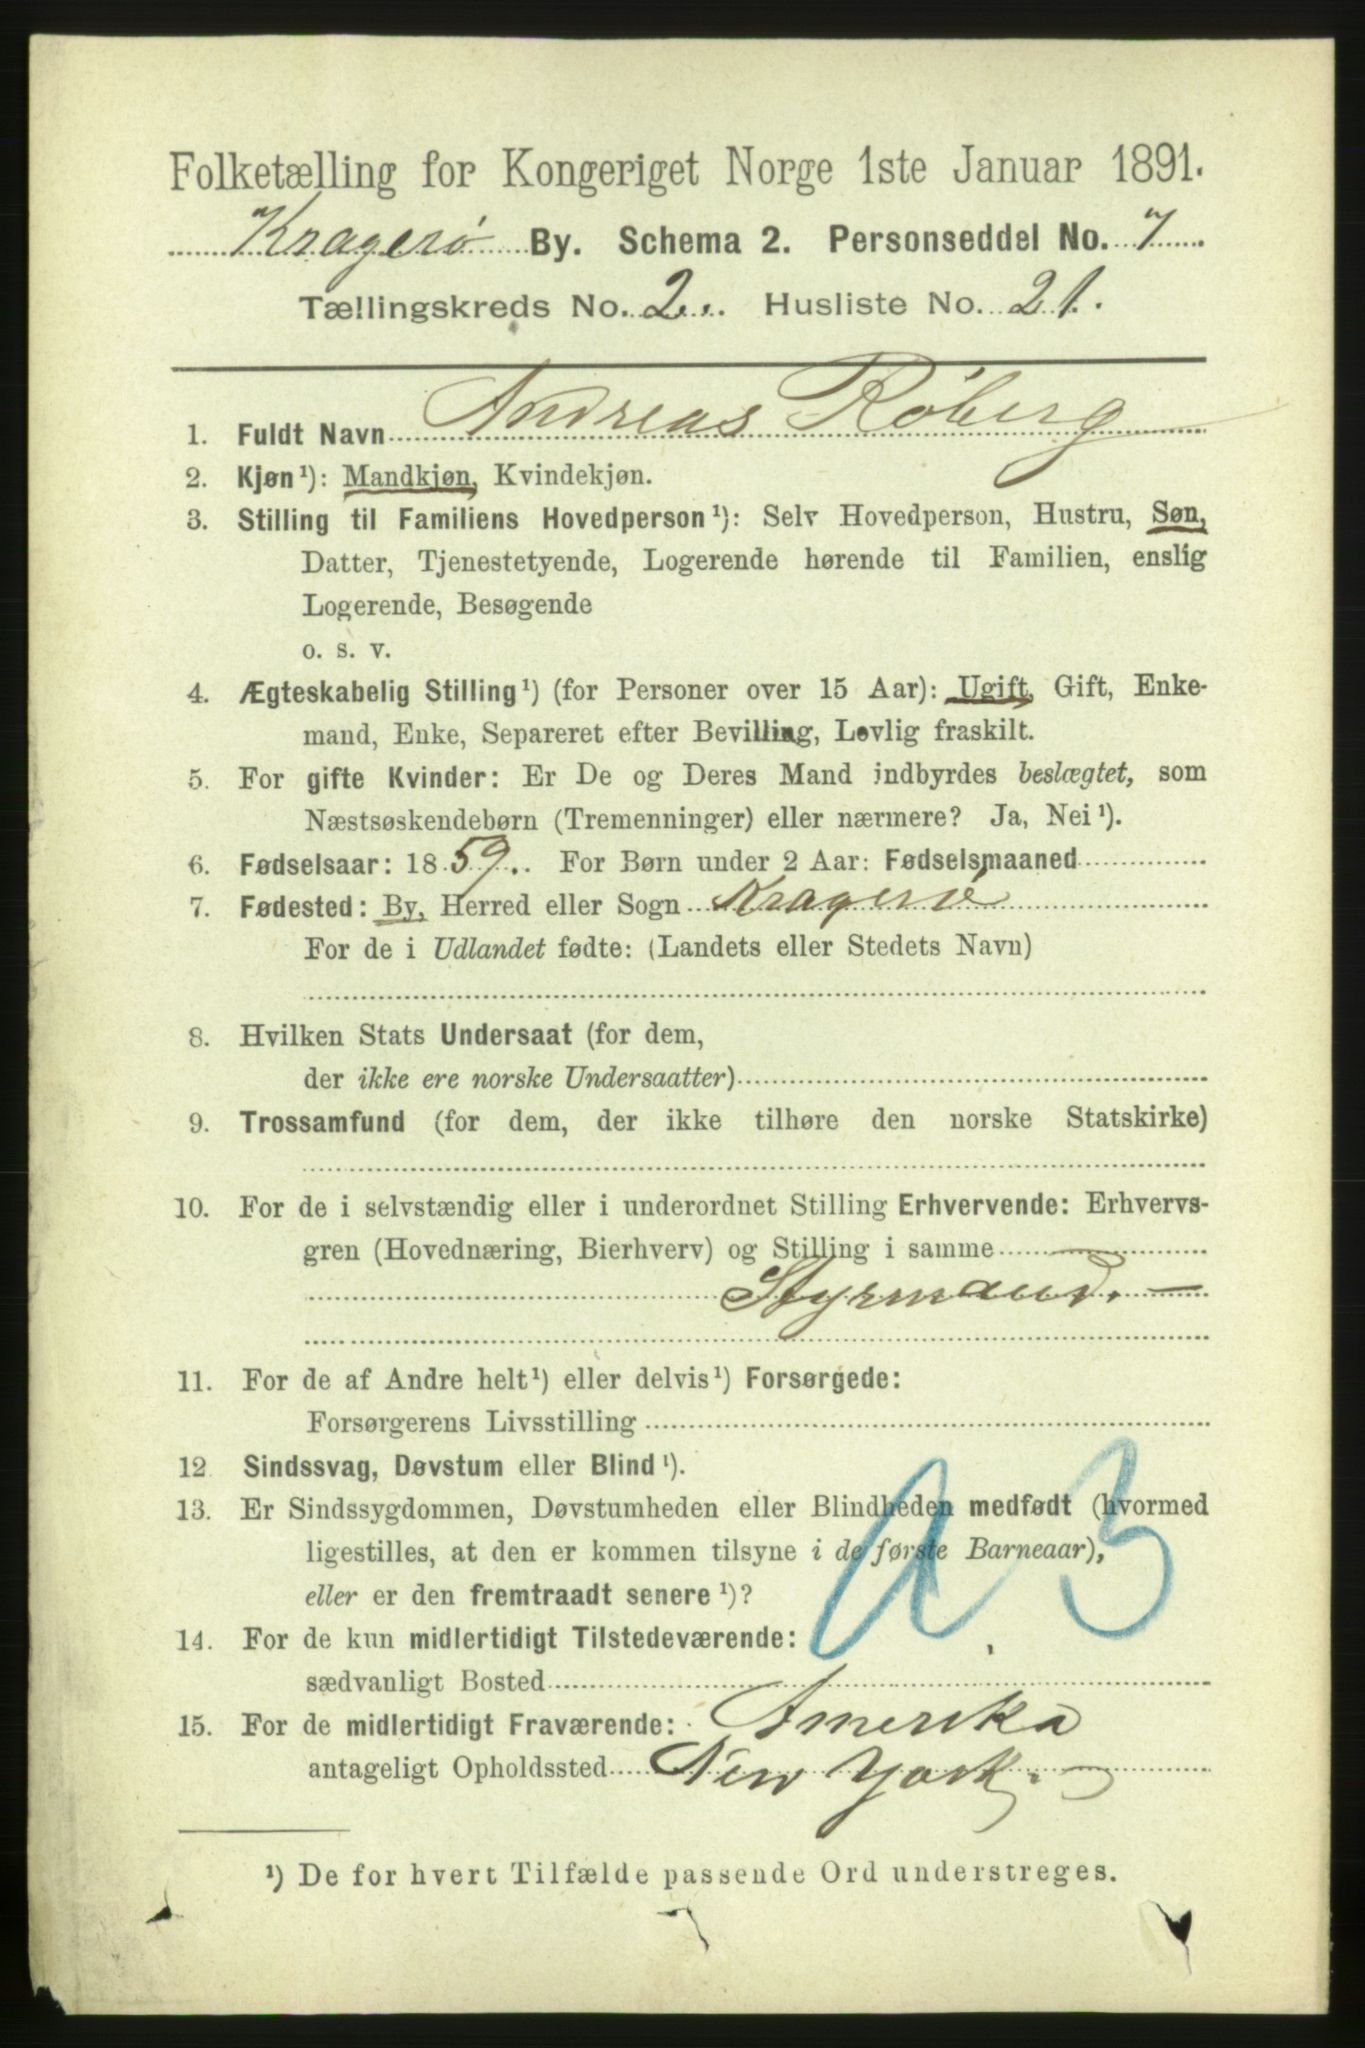 Folketælling for Kongeriget Norge 1ste Januar 1891.
Kragerø By. Schema 2. Personseddel No. 7
Tællingskreds No. 2. Husliste No. 21.
1. Fuldt Navn Andreas Røberg
2. Kjøn¹): Mandkjøn, Kvindekjøn.
3. Stilling til Familiens Hovedperson¹): Selv Hovedperson, Hustru, Søn,
Datter, Tjenestetyende, Logerende hørende til Familien, enslig
Logerende, Besøgende
o. s. v.
4. Ægteskabelig Stilling¹) (for Personer over 15 Aar): Ugift, Gift, Enke-
mand, Enke, Separeret efter Bevilling, Lovlig fraskilt.
5. For gifte Kvinder: Er De og Deres Mand indbyrdes beslægtet, som
Næstsøskendebørn (Tremenninger) eller nærmere? Ja, Nei¹).
6. Fødselsaar: 1859. For Børn under 2 Aar: Fødselsmaaned
7. Fødested: By, Herred eller Sogn Kragerø
For de i Udlandet fødte: (Landets eller Stedets Navn)
8. Hvilken Stats Undersaat (for dem,
der ikke ere norske Undersaatter)
9. Trossamfund (for dem, der ikke tilhøre den norske Statskirke)
10. For de i selvstændig eller i underordnet Stilling Erhvervende: Erhvervs-
gren (Hovednæring, Bierhverv) og Stilling i samme
Styrmand. —
11. For de af Andre helt¹) eller delvis¹) Forsørgede:
Forsørgerens Livsstilling
12 Sindssvag, Døvstum eller Blind¹).
13. Er Sindssygdommen, Døvstumheden eller Blindheden medfødt (hvormed
ligestilles, at den er kommen tilsyne i de første Barneaar),
eller er den fremtraadt senere¹)?
14. For de kun midlertidigt Tilstedeværende:
sædvanligt Bosted
15. For de midlertidigt Fraværende: Amerika
antageligt Opholdssted New York.
¹) De for hvert Tilfælde passende Ord understreges.